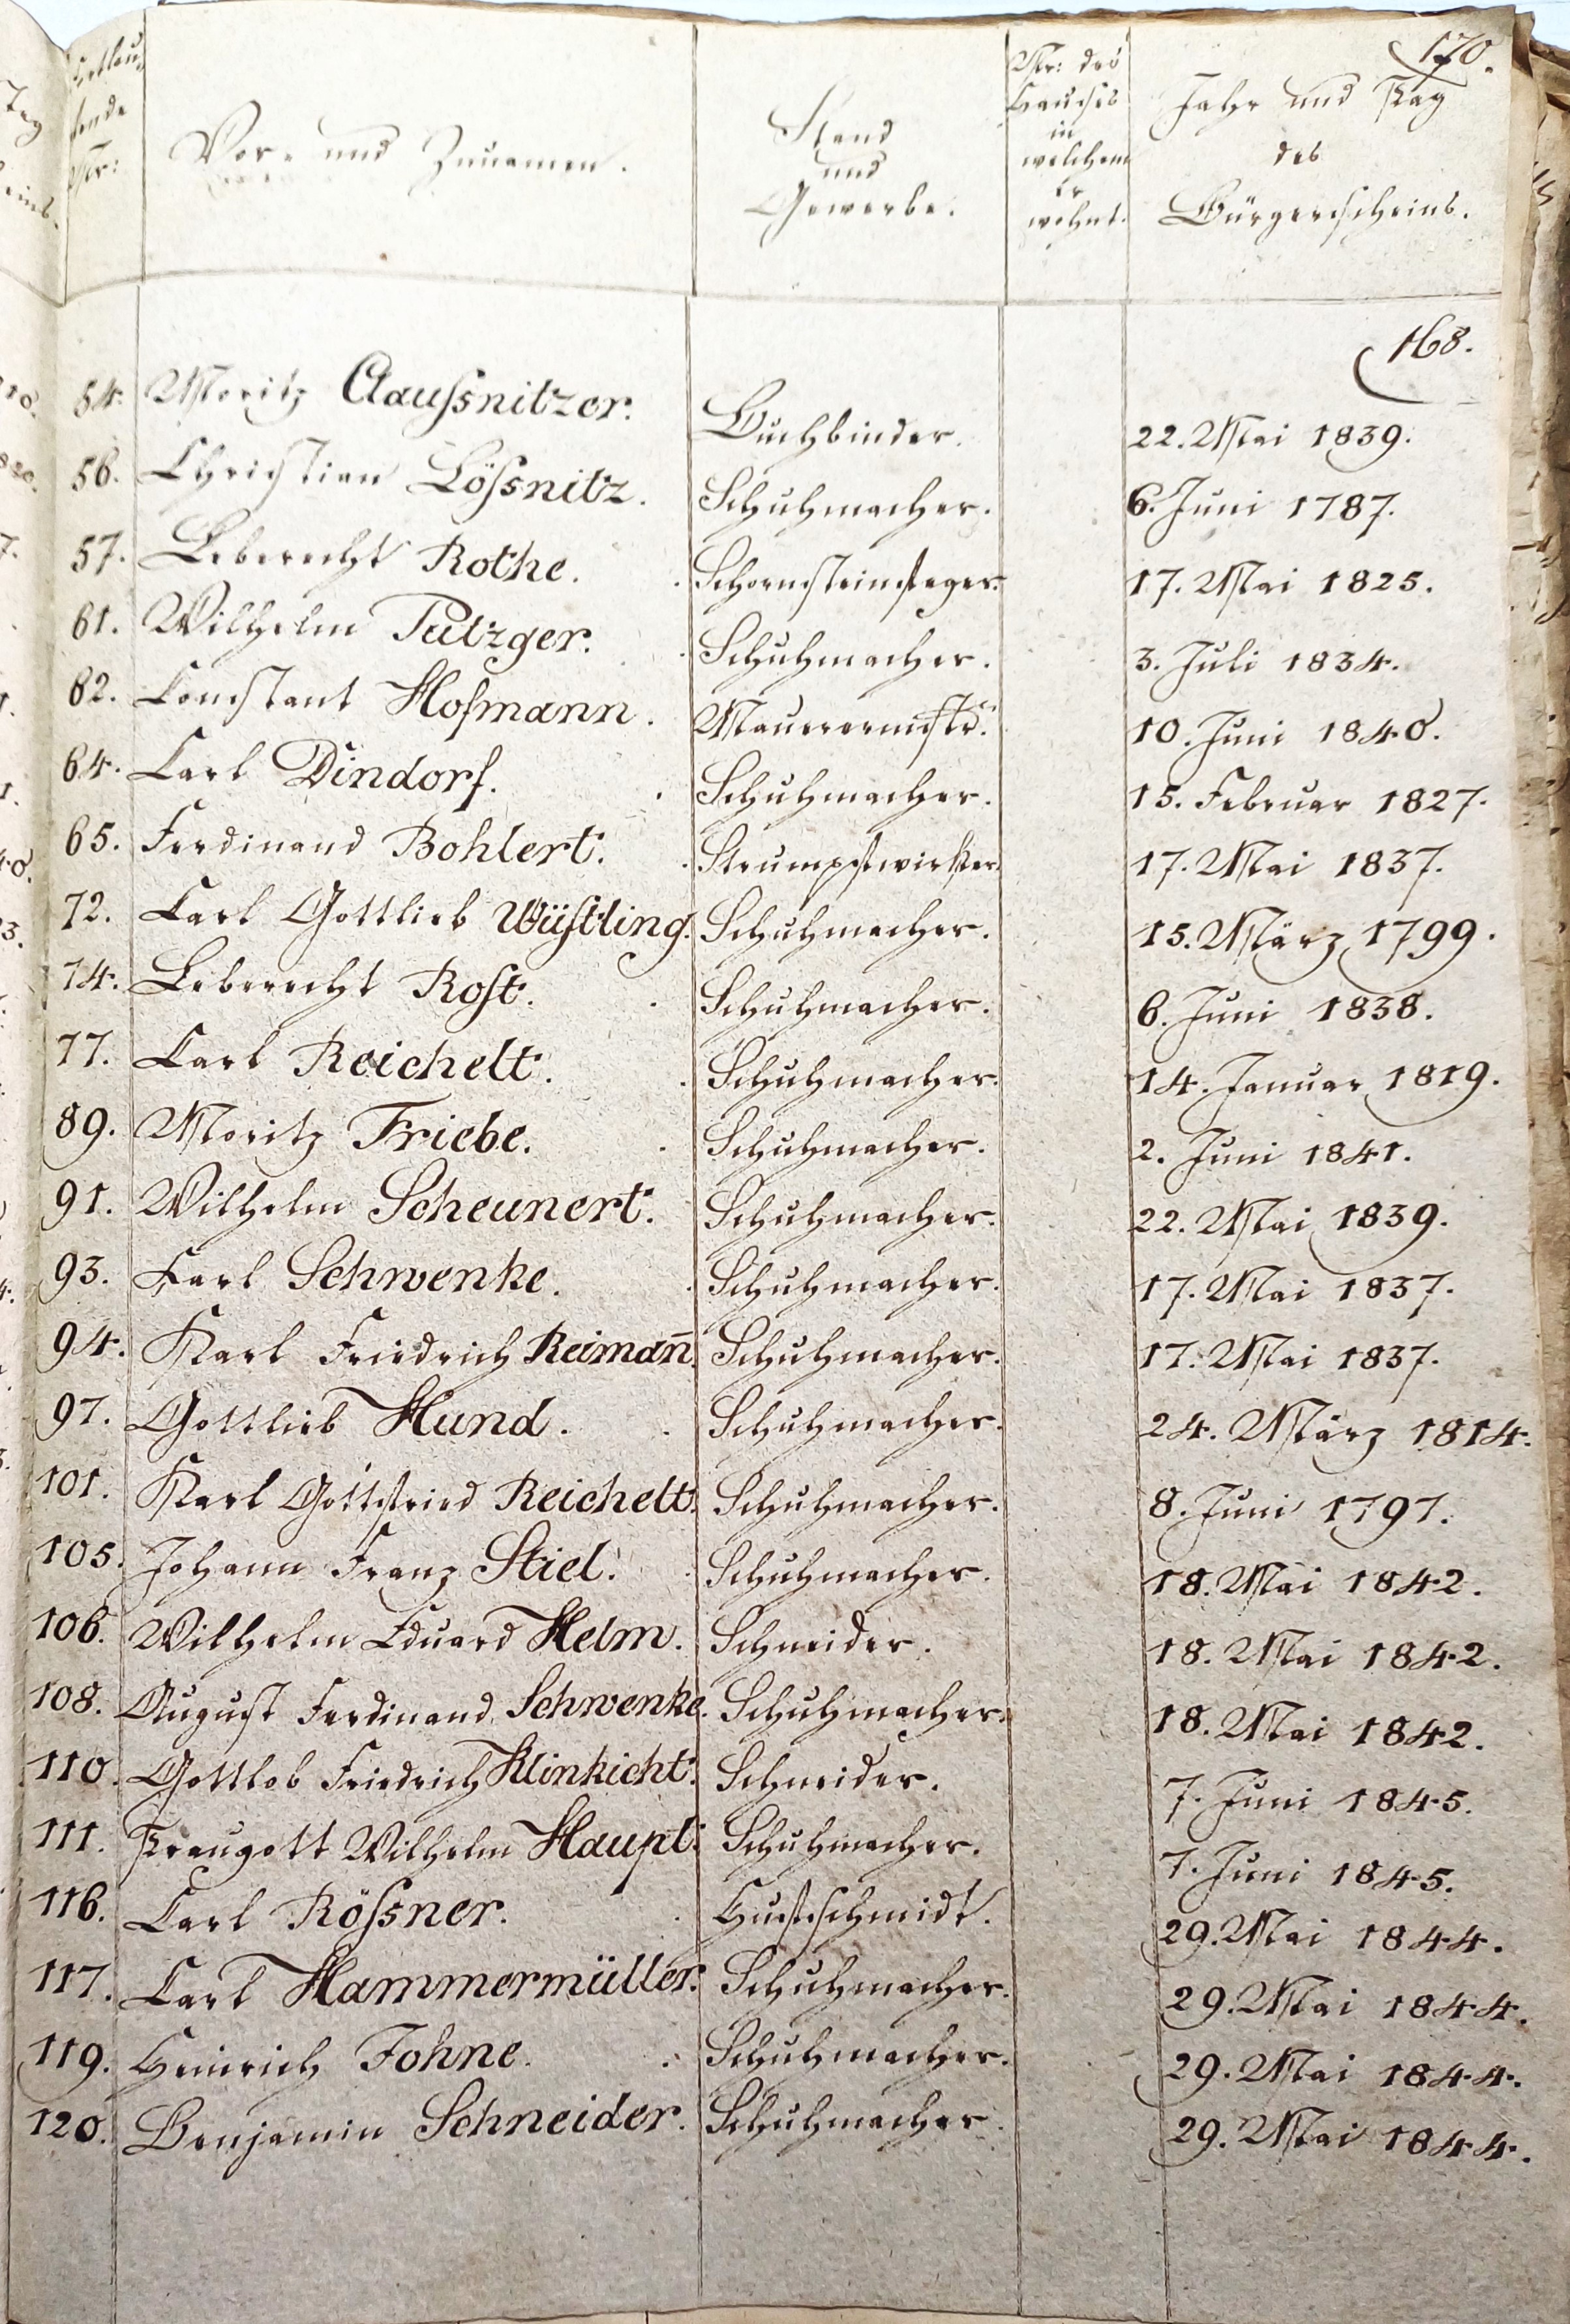 170.
Fortlau-
fende
Nr:
Vor- und Zunamen.
Stand
und
Gewerbe.
Nr: des
Hauses
in
welchem
er
wohnt.
Jahr und Tag
des
Bürgerscheins.
168.
54. Moritz Claussnitzer. Buchbinder. 22. Mai 1839.
56. Christian Lössnitz. Schuhmacher. 6. Juni 1787.
57. Leberecht Rothe. Schornsteinfeger. 17. Mai 1825.
61. Wilhelm Putzger. Schuhmacher. 3. Juli 1834.
62. Constant Hofmann. Mauerermstr. 10. Juni 1840.
64. Carl Dindorf. Schuhmacher. 15. Februar 1827.
65. Ferdinand Bohlert. Strumpfwirker. 17. Mai 1837.
72. Carl Gottlieb Wüstling. Schuhmacher. 15. März 1799.
74. Leberecht Rost. Schuhmacher. 6. Juni 1838.
77. Carl Reichelt. Schuhmacher. 14. Januar 1819.
89. Moritz Friebe. Schuhmacher. 2. Juni 1841.
91. Wilhelm Scheunert. Schuhmacher. 22. Mai 1839.
93. Carl Schwenke. Schuhmacher. 17. Mai 1837.
94. Karl Friedrich Reiman̄. Schuhmacher. 17. Mai 1837.
97. Gottlieb Hund. Schuhmacher. 24. März 1814.
101. Karl Gottfried Reichelt. Schuhmacher. 8. Juni 1797.
105. Johann Franz Stiel. Schuhmacher. 18. Mai 1842.
106. Wilhelm Eduard Helm. Schneider. 18. Mai 1842.
108. August Ferdinand Schwenke. Schuhmacher. 18. Mai 1842.
110. Gottlob Friedrich Klinkicht. Schneider. 7. Juni 1845.
111. Traugott Wilhelm Haupt. Schuhmacher. 7. Juni 1845.
116. Carl Rössner. Hufschmidt. 29. Mai 1844.
117. Carl Hammermüller. Schuhmacher. 29. Mai 1844.
119. Heinrich Johne. Schuhmacher. 29. Mai 1844.
120. Benjamin Schneider. Schuhmacher. 29. Mai 1844.